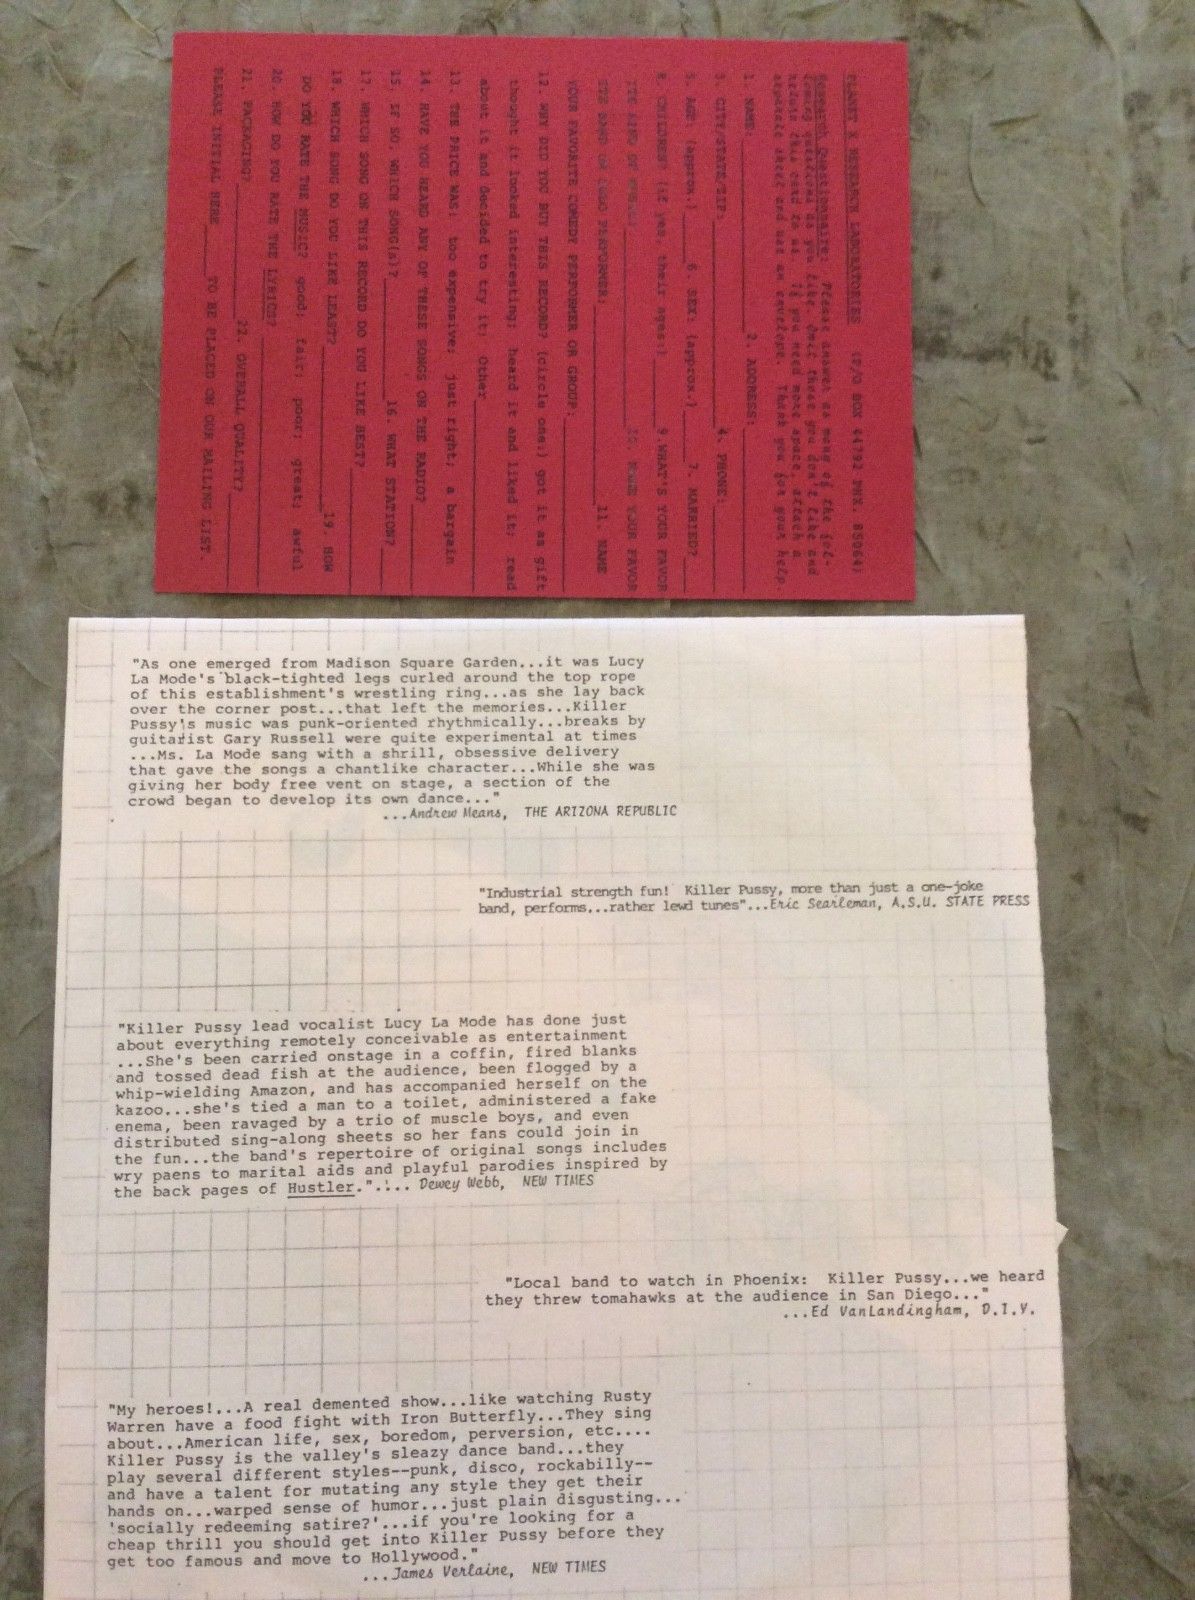 PLANET X RESEARCH LABORATORIES (P/O BOX 44792 PHX. 85064)
Research Questionnaire: Please answer as many of the fol-
lowing questions as you like. Omit those you don't like and
return this card to us. If you need more space, attach a
separate sheet and use an envelope. Thank you for your help.
1. NAME:____ 2. ADDRESS:____
3. CITY/STATE/ZIP:____ 4. PHONE:____
5. AGE: (approx.)____ 6. SEX: (approx.)____ 7. MARRIED?____
8. CHILDREN? (if yes, their ages:)____ 9.WHAT'S YOUR FAVOR
ITE KIND OF MUSIC:____ 10. NAME YOUR FAVOR
ITE BAND OR PERFORMER:____ 11. NAME
YOUR FAVORITE COMEDY PERFORMER OR GROUP:____
12. WHY DID YOU BUY THIS RECORD? (circle one:) got it as gift
thought it looked interesting; heard it and liked it; read
about it and decided to try it; Other____
13. THE PRICE WAS: too expensive; just right; a bargain
14. HAVE YOU HEARD ANY OF THESE SONGS ON THE RADIO?____
15. IF SO, WHICH SONG(s)?____ 16. WHAT STATION?____
17. WHICH SONG ON THIS RECORD DO YOU LIKE BEST?____
18. WHICH SONG DO YOU LIKE LEAST?____ 19. HOW
DO YOU RATE THE MUSIC? good; fair; poor; great; awful
20. HOW DO YOU RATE THE LYRICS?____
21. PACKAGING?____ 22. OVERALL QUALITY?____
PLEASE INITIAL HERE____ TO BE PLACED ON OUR MAILING LIST.
"As one emerged from Madison Square Garden...it was Lucy
La Mode's black-tighted legs curled around the top rope
of this establishment's wrestling ring...as she lay back
over the corner post...that left the memories...Killer
Pussy's music was punk-oriented rhythmically...breaks by
guitarist Gary Russell were quite experimental at times
...Ms. La Mode sang with a shrill, obsessive delivery
that gave the songs a chantlike character...While she was
giving her body free vent on stage, a section of the
crowd began to develop its own dance..."
...Andrew Means, THE ARIZONA REPUBLIC
"Industrial strength fun! Killer Pussy, more than just a one-joke
band, performs...rather lewd tunes"...Eric Searleman, A.S.U. STATE PRESS
"Killer Pussy lead vocalist Lucy La Mode has done just
about everything remotely conceivable as entertainment
...She's been carried onstage in a coffin, fired blanks
and tossed dead fish at the audience, been flogged by a
whip-wielding Amazon, and has accompanied herself on the
kazoo...she's tied a man to a toilet, administered a fake
enema, been ravaged by a trio of muscle boys, and even
distributed sing-along sheets so her fans could join in
the fun...the band's repertoire of original songs includes
wry paens to marital aids and playful parodies inspired by
the back pages of Hustler.".... Dewey Webb, NEW TIMES
"Local band to watch in Phoenix: Killer Pussy...we heard
they threw tomahawks at the audience in San Diego..."
...Ed VanLandingham, D.I.Y.
"My heroes!...A real demented show...like watching Rusty
Warren have a food fight with Iron Butterfly...They sing
about...American life, sex, boredom, perversion, etc....
Killer Pussy is the valley's sleazy dance band...they
play several different styles--punk, disco, rockabilly--
and have a talent for mutating any style they get their
hands on...warped sense of humor...just plain disgusting...
'socially redeeming satire?'...if you're looking for a
cheap thrill you should get into Killer Pussy before they
get too famous and move to Hollywood."
...James Verlaine, NEW TIMES